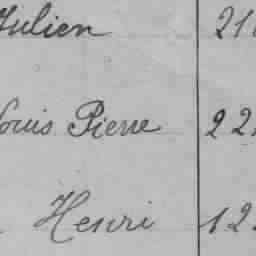 Julien 21
Louis Pierre 22
Henri 12